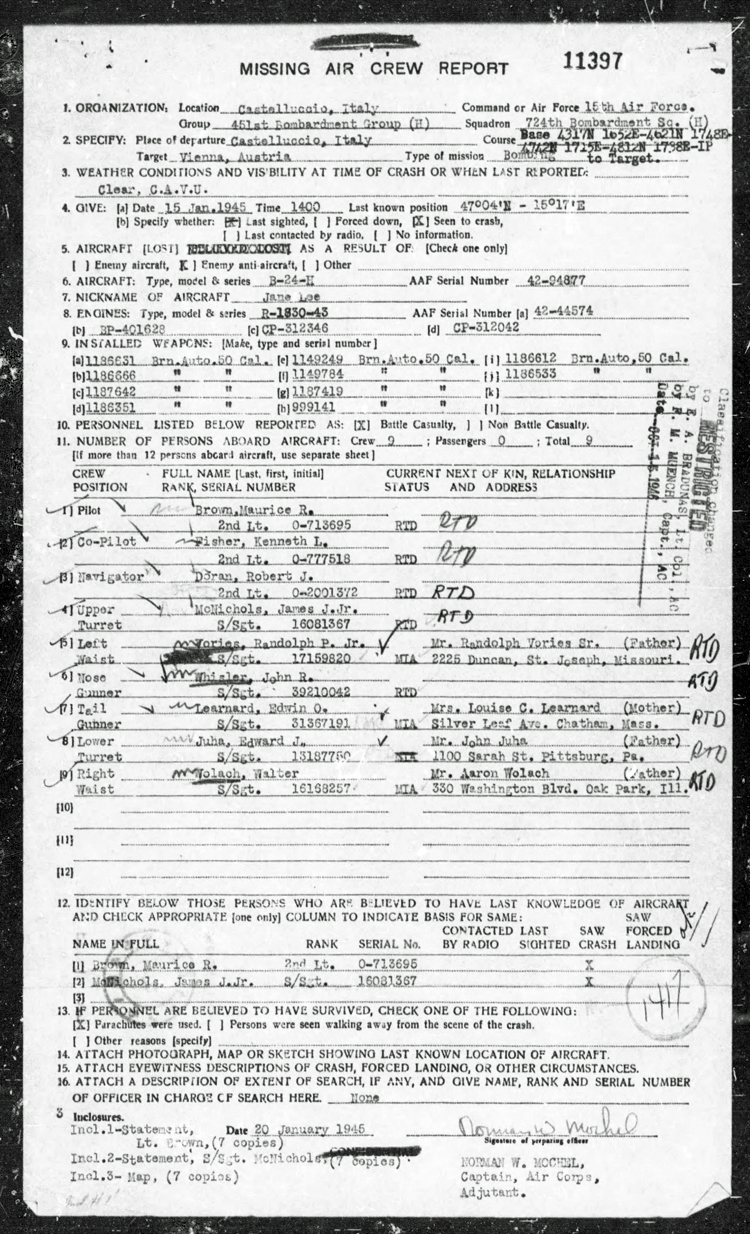 MISSING AIR CREW REPORT
11397
1. ORGANIZATION: Location Castelluccio, Italy Command or Air Force 15th Air Force.
Group 451st Bombardment Group (H) Squadron 724th Bombardment Sq. (H)
2. SPECIFY: Place of departure Castelluccio, Italy Course Base 4317N 1652E-4621N 1748E-
4742N 1715E-4812N 1738E-IP
Target Vienna, Austria Type of mission Bombing to Target.
3. WEATHER CONDITIONS AND VISIBILITY AT TIME OF CRASH OR WHEN LAST REPORTED:
Clear, C.A.V.U.
4. GIVE: [a] Date 15 Jan.1945 Time 1400 Last known position 47°04'N - 15°17'E
[b] Specify whether: [ ] Last sighted, [ ] Forced down, [X] Seen to crash,
[ ] Last contacted by radio, [ ] No information.
5. AIRCRAFT [LOST] AS A RESULT OF: [Check one only]
[ ] Enemy aircraft, [X] Enemy anti-aircraft, [ ] Other
6. AIRCRAFT: Type, model & series B-24-H AAF Serial Number 42-94877
7. NICKNAME OF AIRCRAFT Jane Lee
8. ENGINES: Type, model & series R-1830-43 AAF Serial Number [a] 42-44574
[b] BP-401628 [c] CP-312346 [d] CP-312042
9. INSTALLED WEAPONS: [Make, type and serial number]
[a] 1186631 Brn.Auto.50 Cal. [e] 1149249 Brn.Auto.50 Cal. [i] 1186612 Brn.Auto.50 Cal.
[b] 1186666 " " [f] 1149784 " " [j] 1186533 " "
[c] 1187642 " " [g] 1187419 " " [k]
[d] 1186351 " " [h] 999141 " " [l]
10. PERSONNEL LISTED BELOW REPORTED AS: [X] Battle Casualty, [ ] Non Battle Casualty.
11. NUMBER OF PERSONS ABOARD AIRCRAFT: Crew 9 ; Passengers 0 ; Total 9
[If more than 12 persons aboard aircraft, use separate sheet]
CREW FULL NAME [Last, first, initial] CURRENT NEXT OF KIN, RELATIONSHIP
POSITION RANK, SERIAL NUMBER STATUS AND ADDRESS
[1] Pilot Brown, Maurice R.
2nd Lt. O-713695 RTD RTD
[2] Co-Pilot Fisher, Kenneth L.
2nd Lt. O-777518 RTD RTD
[3] Navigator Doran, Robert J.
2nd Lt. O-2001372 RTD RTD
[4] Upper McNichols, James J.Jr.
Turret S/Sgt. 16081367 RTD RTD
[5] Left Vories, Randolph P. Jr. Mr. Randolph Vories Sr. (Father)
Waist S/Sgt. 17159820 MIA 2225 Duncan, St. Joseph, Missouri. RTD
[6] Nose Whisler, John R.
Gunner S/Sgt. 39210042 RTD RTD
[7] Tail Learnard, Edwin O. Mrs. Louise C. Learnard (Mother)
Gunner S/Sgt. 31367191 MIA Silver Leaf Ave. Chatham, Mass. RTD
[8] Lower Juha, Edward J. Mr. John Juha (Father)
Turret S/Sgt. 13187750 MIA 1100 Sarah St. Pittsburg, Pa. RTD
[9] Right Wolach, Walter Mr. Aaron Wolach (Father)
Waist S/Sgt. 16168257 MIA 330 Washington Blvd. Oak Park, Ill. RTD
[10]
[11]
[12]
Classification changed
to RESTRICTED
by E. A. BRADUNAS, Lt. Col., AC
by F. M. MUENCH, Capt., AC
Date OCT 1946
12. IDENTIFY BELOW THOSE PERSONS WHO ARE BELIEVED TO HAVE LAST KNOWLEDGE OF AIRCRAFT
AND CHECK APPROPRIATE [one only] COLUMN TO INDICATE BASIS FOR SAME:
CONTACTED LAST SAW SAW FORCED
NAME IN FULL RANK SERIAL No. BY RADIO SIGHTED CRASH LANDING
[1] Brown, Maurice R. 2nd Lt. O-713695 X
[2] McNichols, James J.Jr. S/Sgt. 16081367 X
[3]
1417
13. IF PERSONNEL ARE BELIEVED TO HAVE SURVIVED, CHECK ONE OF THE FOLLOWING:
[X] Parachutes were used. [ ] Persons were seen walking away from the scene of the crash.
[ ] Other reasons [specify]
14. ATTACH PHOTOGRAPH, MAP OR SKETCH SHOWING LAST KNOWN LOCATION OF AIRCRAFT.
15. ATTACH EYEWITNESS DESCRIPTIONS OF CRASH, FORCED LANDING, OR OTHER CIRCUMSTANCES.
16. ATTACH A DESCRIPTION OF EXTENT OF SEARCH, IF ANY, AND GIVE NAME, RANK AND SERIAL NUMBER
OF OFFICER IN CHARGE OF SEARCH HERE. None
3 Inclosures.
Incl.1-Statement, Date 20 January 1945 Norman W Mochel
Lt. Brown,(7 copies) Signature of preparing officer
Incl.2-Statement, S/Sgt. McNichols,(7 copies) NORMAN W. MOCHEL,
Incl.3- Map, (7 copies) Captain, Air Corps,
Adjutant.